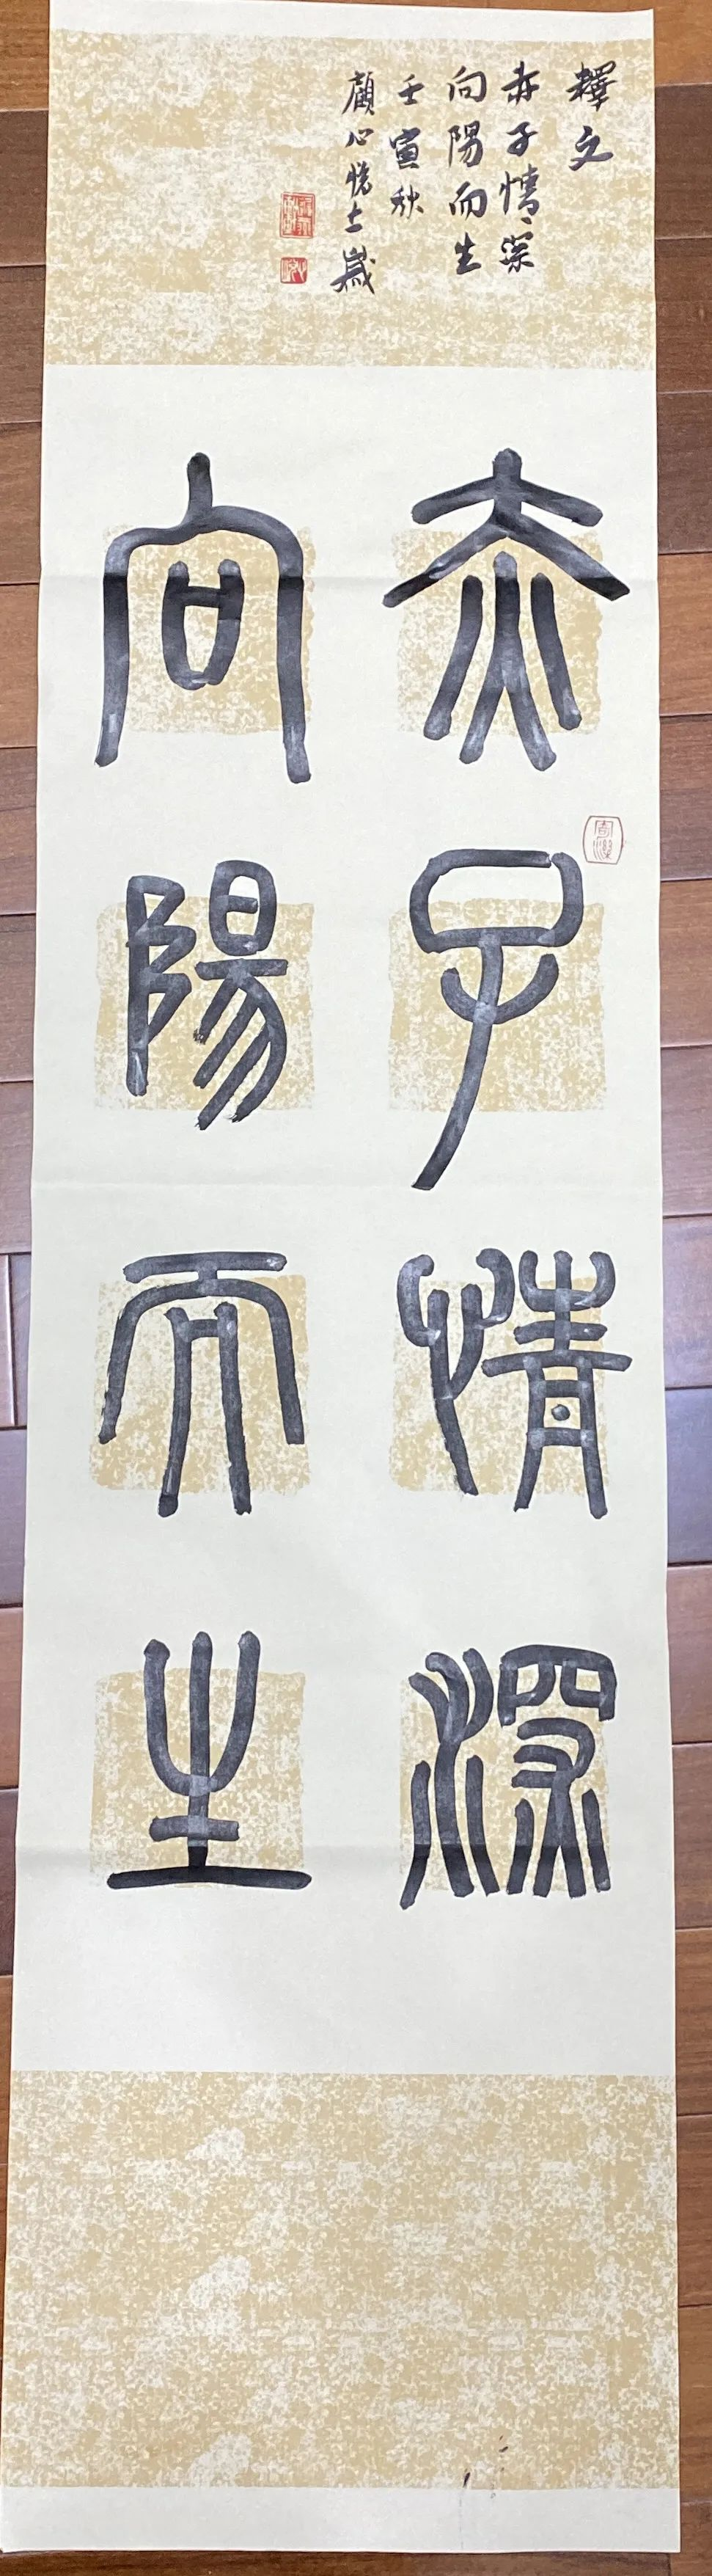 釋文
赤子情深
向陽而生
壬寅秋
顧心悅七歲
赤子情深
向陽而生